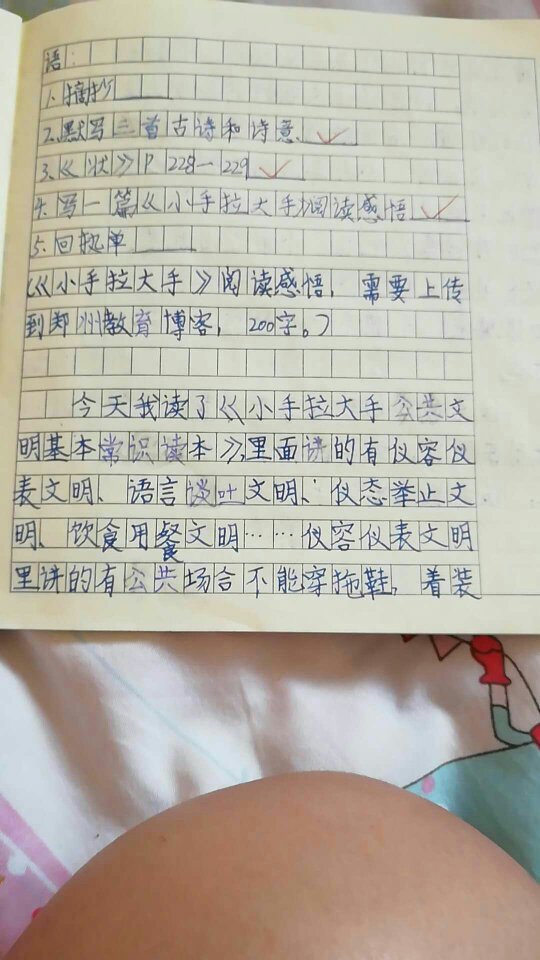 语:
1.摘抄
2.默写三首古诗和诗意
3.《状》P 228—229
4.写一篇《小手拉大手》阅读感悟
5.回执单
(《小手拉大手》阅读感悟,需要上传
到郑州教育博客,200字。)
今天我读了《小手拉大手公共文
明基本常识读本》,里面讲的有仪容仪
表文明、语言谈吐文明、仪态举止文
明、饮食用餐文明……仪容仪表文明
里讲的有公共场合不能穿拖鞋,着装